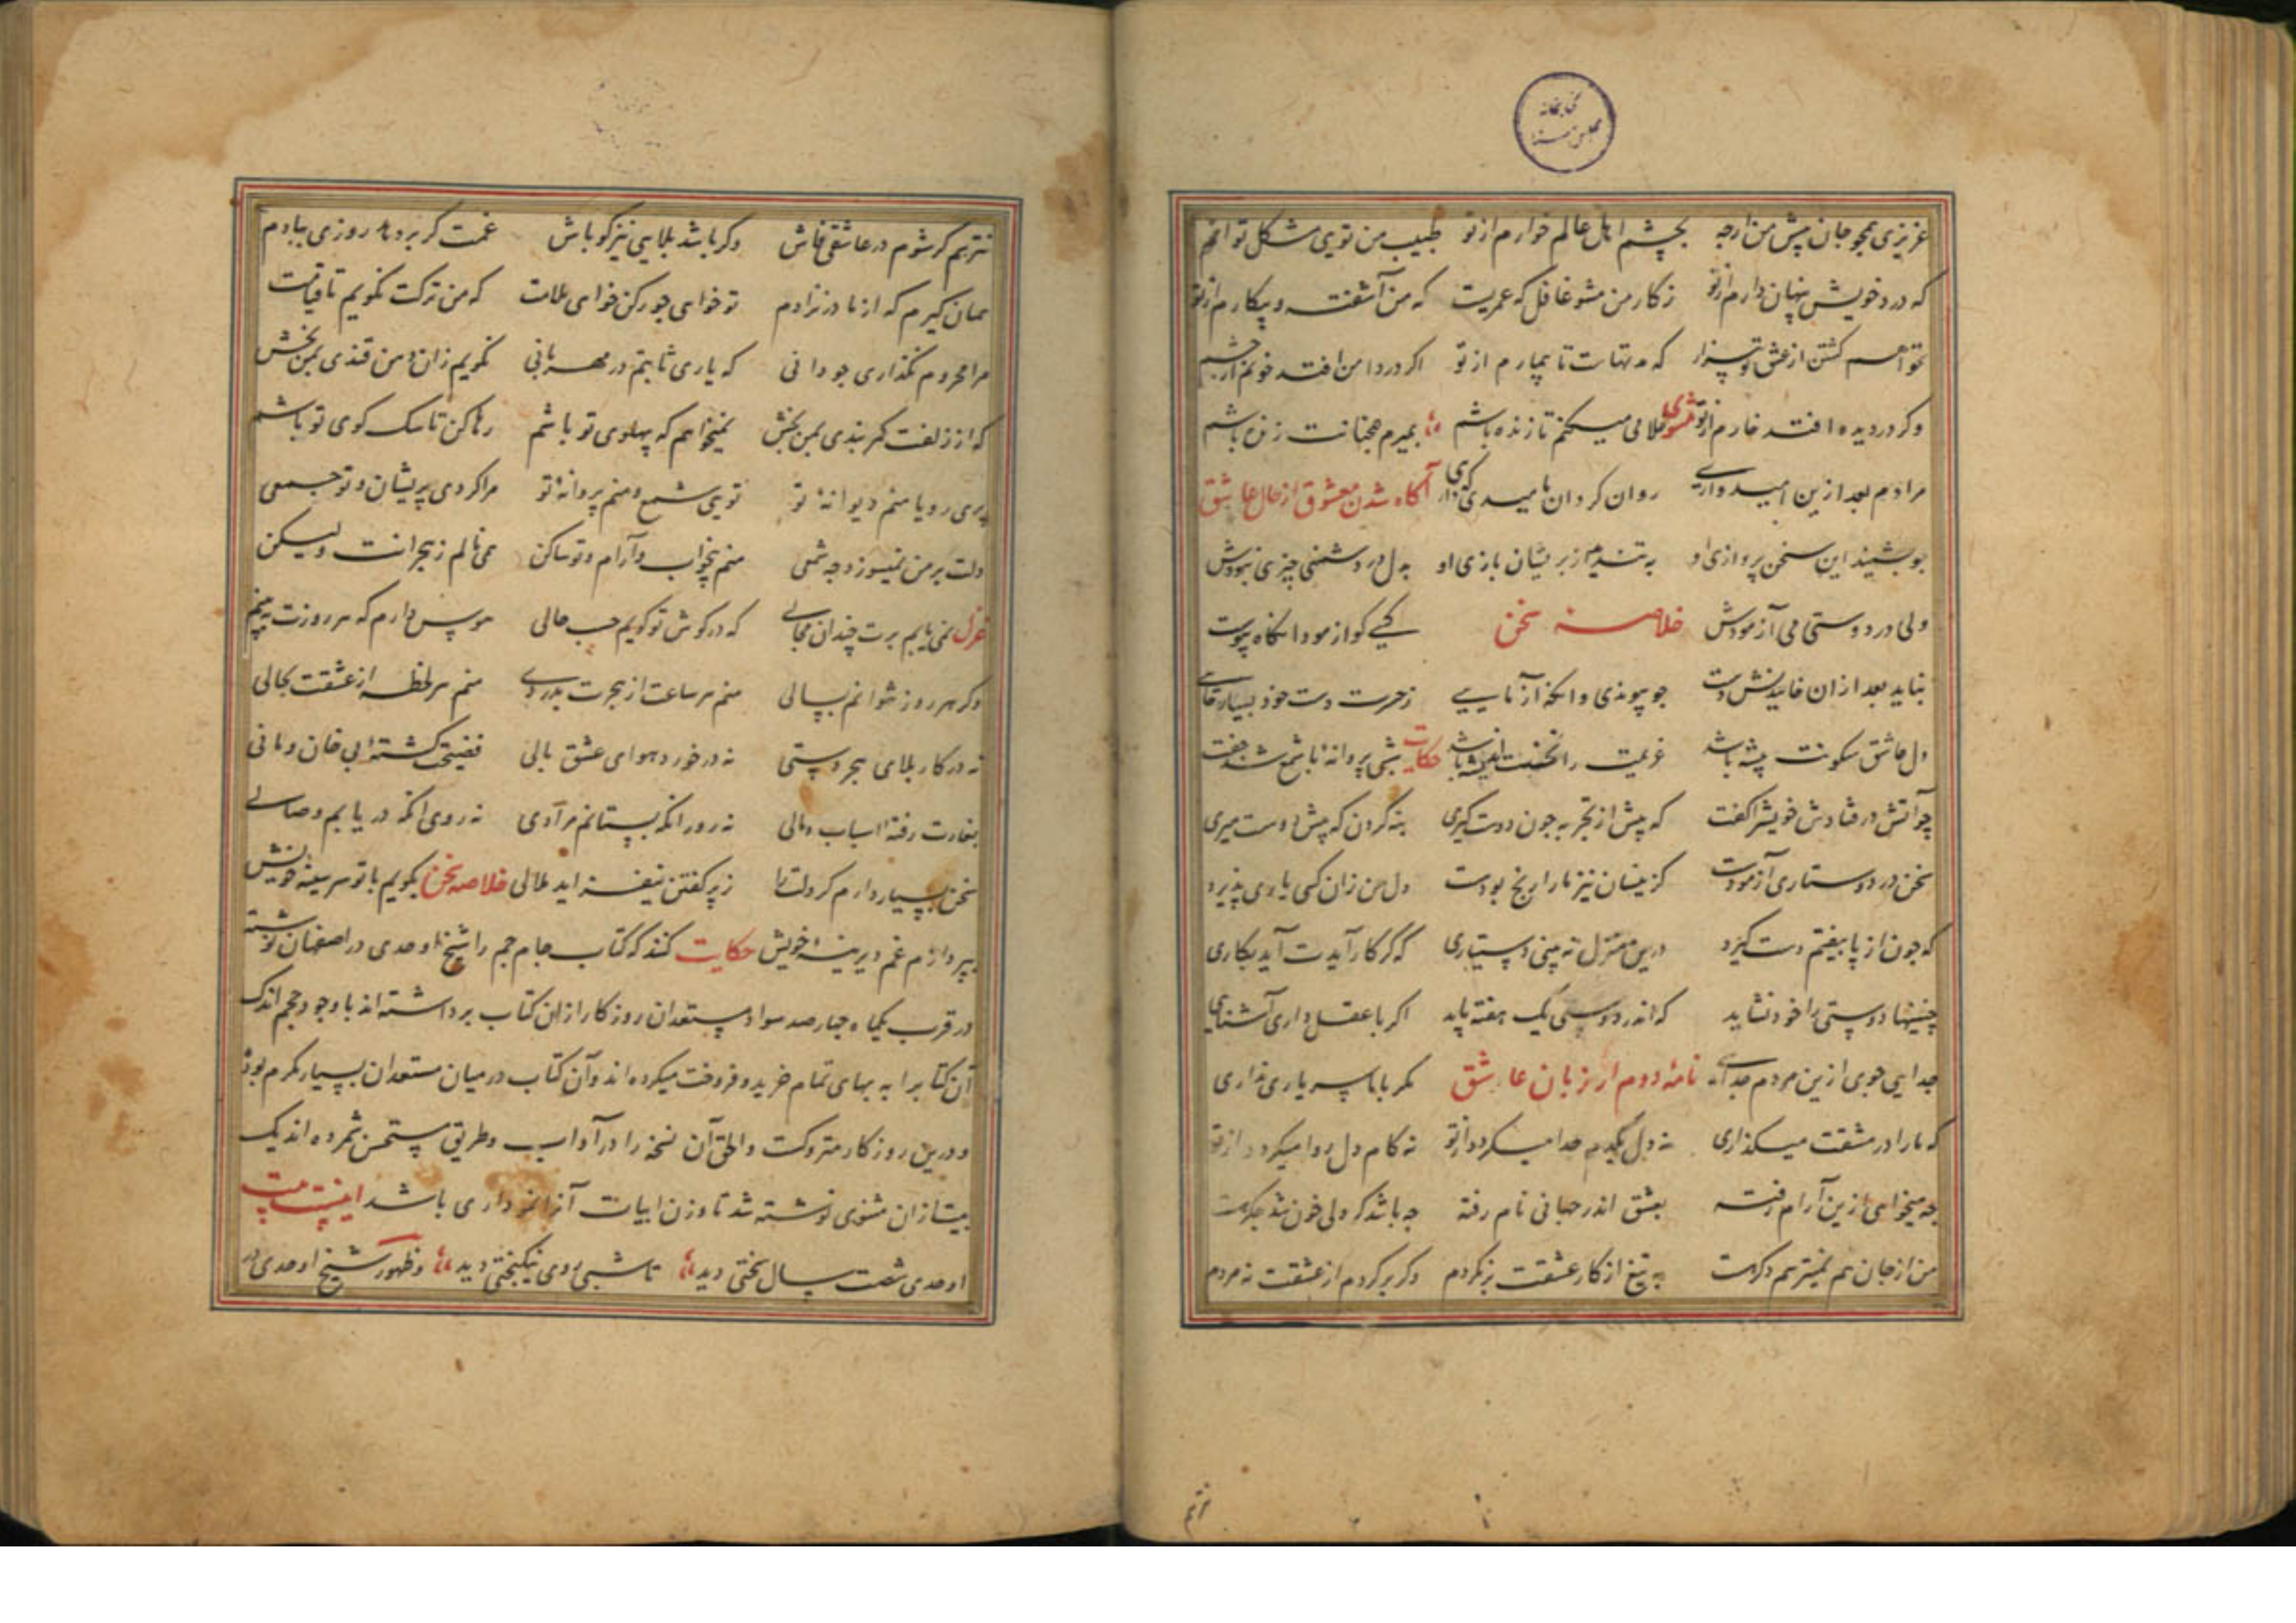 کتابخانه
مجلس
عزیزی همچو جان پیش من ارچه بچشم اهل عالم خوارم از تو طبیب من تویی مشکل توانم
که درد خویش پنهان دارم از تو ز کار من مشو غافل که عمریست که من آشفته و بیکارم از تو
نخواهم گشتن از عشق تو بیزار که مهتات تا بیمارم از تو اگر در دامن افتد خونم از چشم
وگر در دیده افتد خارم از تو مثنوی غلامی میکنم تا زنده باشم بمیرم همچنانت بنده باشم
مرادم بعد ازین امیدواری روان کردان بامیدی که داری آگاه شدن معشوق از حال عاشق
چو بشنید این سخن پردازی او به تندی از پریشان بازی او به دل در دشمنی چیزی نبودش
ولی در دوستی می آزمودش خلاصه سخن کسی کو ازمود انکاه پیوست
نباید بعد ازان خاییدنش دست چو پیوندی وانکه آزمایی ز حیرت دست خود بسیار خایی
دل عاشق سکونت پیشه باشد غریمت را نخست اندیشه باشد حکایت شبی پروانهٔ با شمع شد جفت
چو آتش در فتادش خویش را کفت که پیش از تجربه چون دوست کیری بنه کردن که پیش دوست میری
سخن در دوستاری آزمودست کزیشان نیز ما را رنج بودست دل من زان کسی یاری پذیرد
که چون از پا بیفتم دست کیرد درین منزل نه بینی دوستیاری که کر کار آیدت آید بکاری
چنینها دوستی را خود نشاید که اندر دوستی یک هفته پاید اکر با عقل داری آشنایی
جدایی جوی ازین مردم جدایی نامهٔ دوم از زبان عاشق مکر با ما سر یاری نداری
که ما را در مشقت میکذاری نه دل یکدم جدا میکردد از تو نه کام دل روا میکردد از تو
چه میخواهی ازین آرام رفته بعشق اندر جهانی نام رفته چه باشد کر دلی خون شد
من از جان هم نمیترسم به تیغ از کار عشقت برنکردم وکر برکردم از عشقت نه مردم
نترسم
نترسم کر شوم در عاشقی فاش وکر باشد بلایی نیز کو باش غمت کر بردهد روزی ببادم
همان کیرم که از مادر نزادم تو خواهی جور کن خواهی ملامت که من ترکت نکویم تا قیامت
مرا محروم نکذاری چو دانی که یاری ثابتم در مهربانی نکویم زان دهن قندی بمن بخش
که از زلفت کمربندی بمن بخش نمیخواهم که پهلوی تو باشم رها کن تا سک کوی تو باشم
پری رویا منم دیوانهٔ تو تویی شمع و منم پروانهٔ تو مرا کردی پریشان و تو جمعی
دلت بر من نمیسوزد چه شمعی منم بیخواب و آرام و تو ساکن همی نالم ز هجرانت ولیکن
غزل نمی یابم برت چندان مجالی که در کوش تو کویم حسب حالی هوس دارم که هر روزت ببینم
وکر هر روز نتوانم بسالی منم هر ساعت از هجرت بدردی منم هر لحظه از عشقت بحالی
نه در کار بلای هجر دستی نه در خورد هوای عشق بالی فضیحت کشتهٔ بی خان و مانی
بغارت رفتهٔ اسباب و مالی نه روز انکه بستانم مرادی نه روی انکه دریابم وصالی
سخن بسیار دارم کر دلت را ز پر کفتن نیفزاید ملالی خلاصه سخن بکویم با تو سر سینهٔ خویش
بپردازم غم دیرینهٔ خویش حکایت کنند که کتاب جام جم را شیخ اوحدی در اصفهان نوشته
در قرب یکماه چهارصد سواد مستعدان روزکار ازان کتاب برداشته اند با وجود حجم اندک
آن کتاب را به بهای تمام خرید و فروخت میکرده اند و آن کتاب در میان مستعدان بسیار مکرم بود
و درین روزکار متروکست والحق آن نسخه را در آداب و طریق مستحسن شمرده اند یک
بیت ازان مثنوی نوشته شد تا وزن ابیات آنرا نموداری باشد اینست بیت
اوحدی شصت سال سختی دید تا شبی روی نیکبختی دید و ظهور شیخ اوحدی در